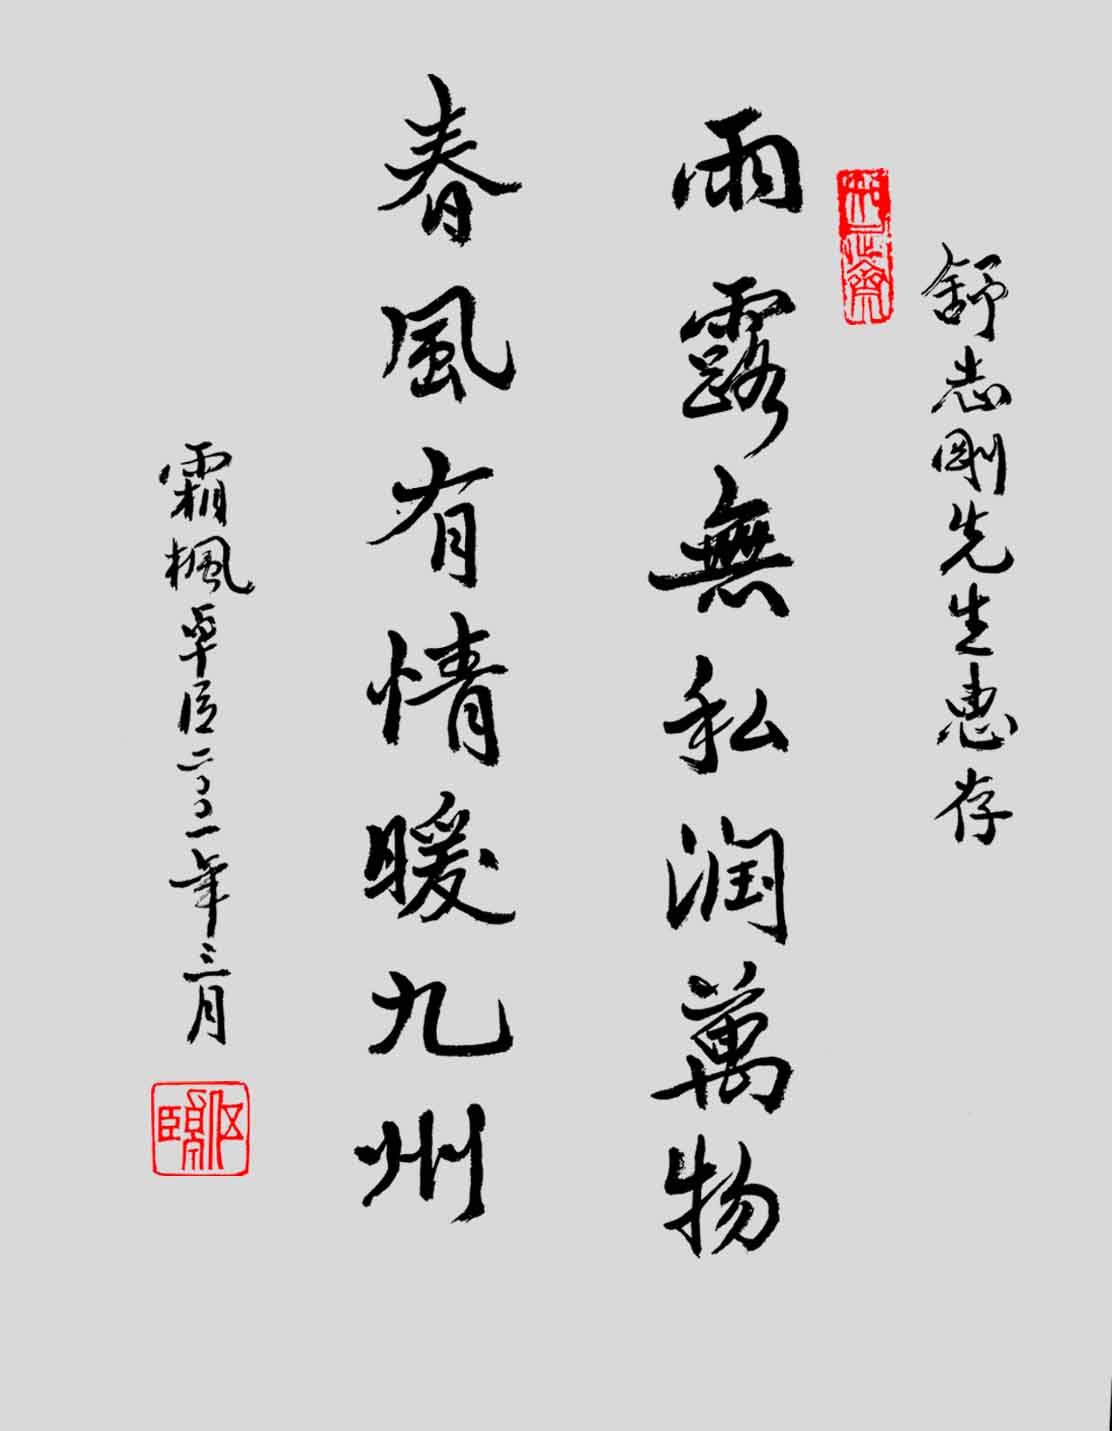 舒志剛先生惠存
雨露無私润萬物
春風有情暖九州
霜楓卓臣二〇〇一年三月